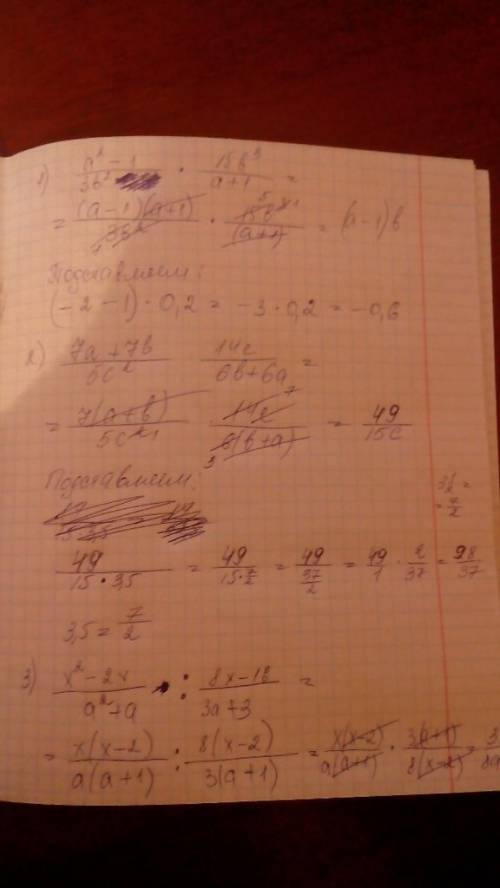 1) (a² - 1)/(3b²) · (15b³)/(a+1) =
= ((a-1)(a+1))/(3b²) · (15b³)/(a+1) = (a-1)b
Подставляем:
(-2-1) · 0,2 = -3 · 0,2 = -0,6
2) (7a+7b)/(5c²) (14c)/(6b+6a) =
= (7(a+b))/(5c²) (14c)/(6(b+a)) = 49/(15c)
Подставляем:
49/(15 · 3,5) = 49/(15 · 7/2) = 49/(37/2) = 49/1 · 2/37 = 98/37
3,5 = 7/2
3) (x² - 2x)/(a² + a) : (8x-16)/(3a+3) =
= (x(x-2))/(a(a+1)) : (8(x-2))/(3(a+1)) = (x(x-2))/(a(a+1)) · (3(a+1))/(8(x-2)) =